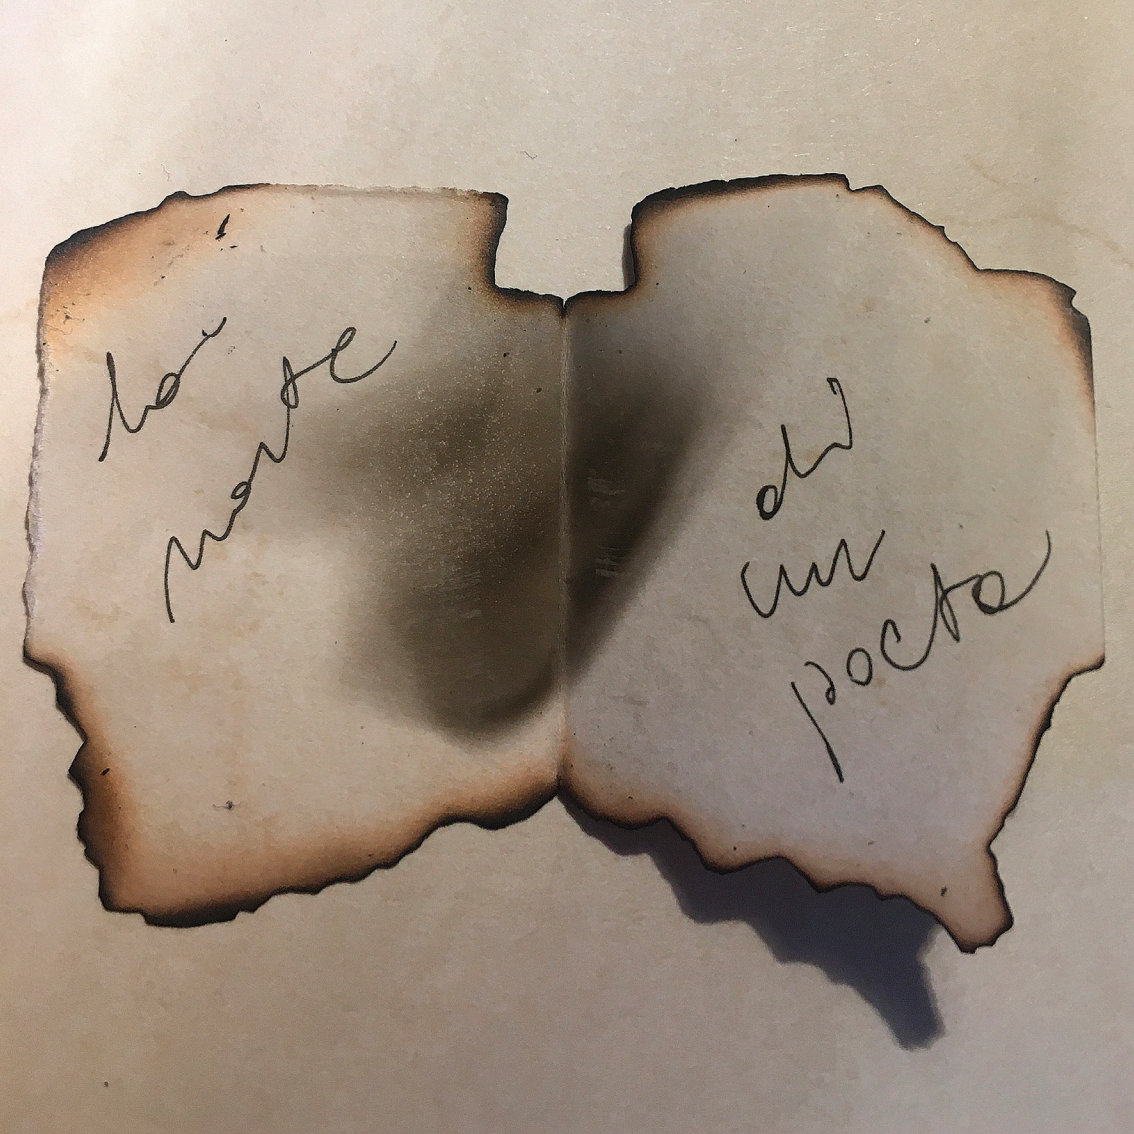 la
morte
di
un
poeta